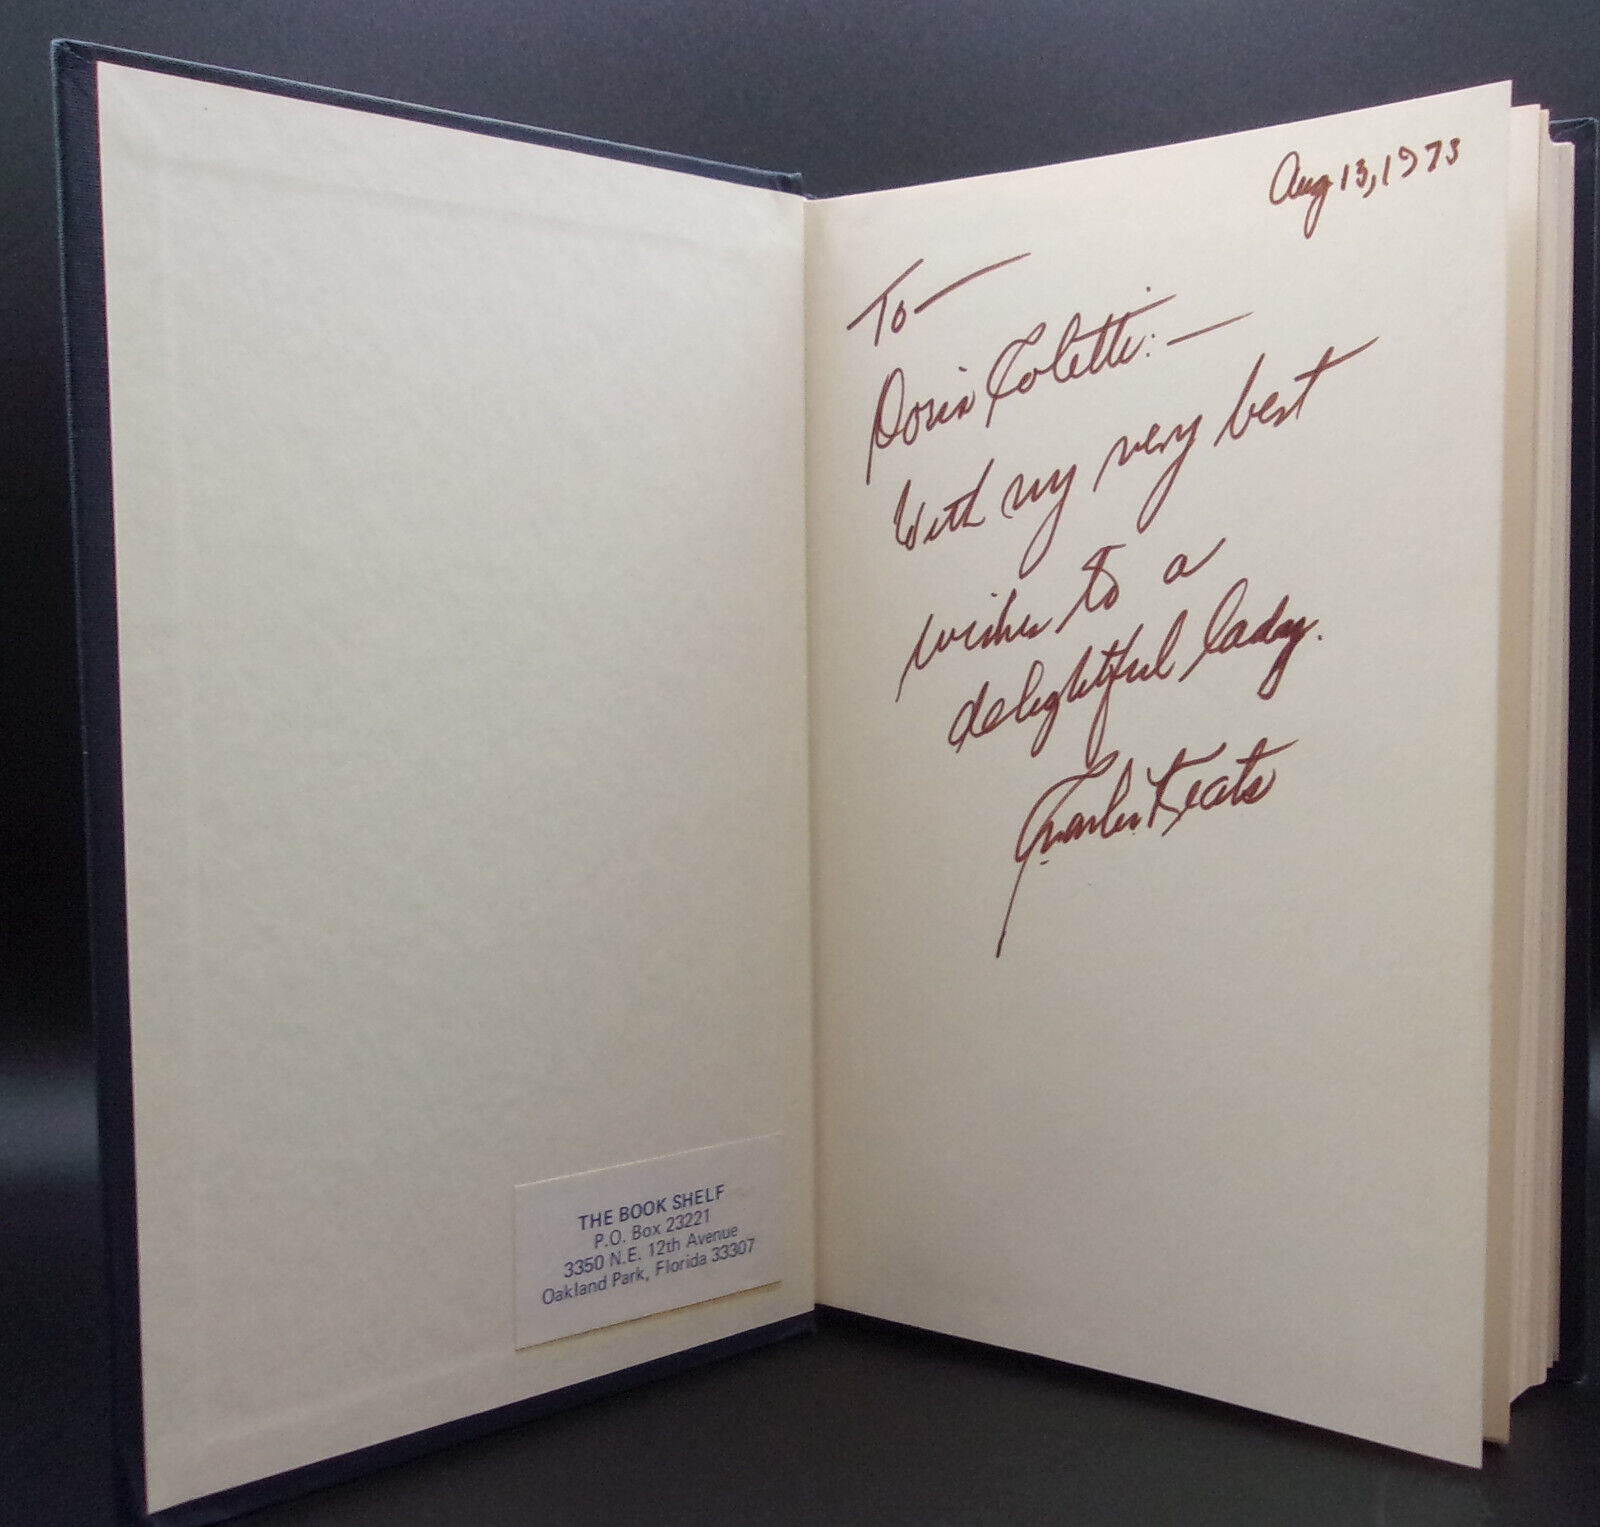 THE BOOK SHELF
P.O. Box 23221
3350 N.E. 12th Avenue
Oakland Park, Florida 33307
Aug 13, 1973
To —
Doris Coletti: —
With my very best
wishes to a
delightful lady.
Charles Keats